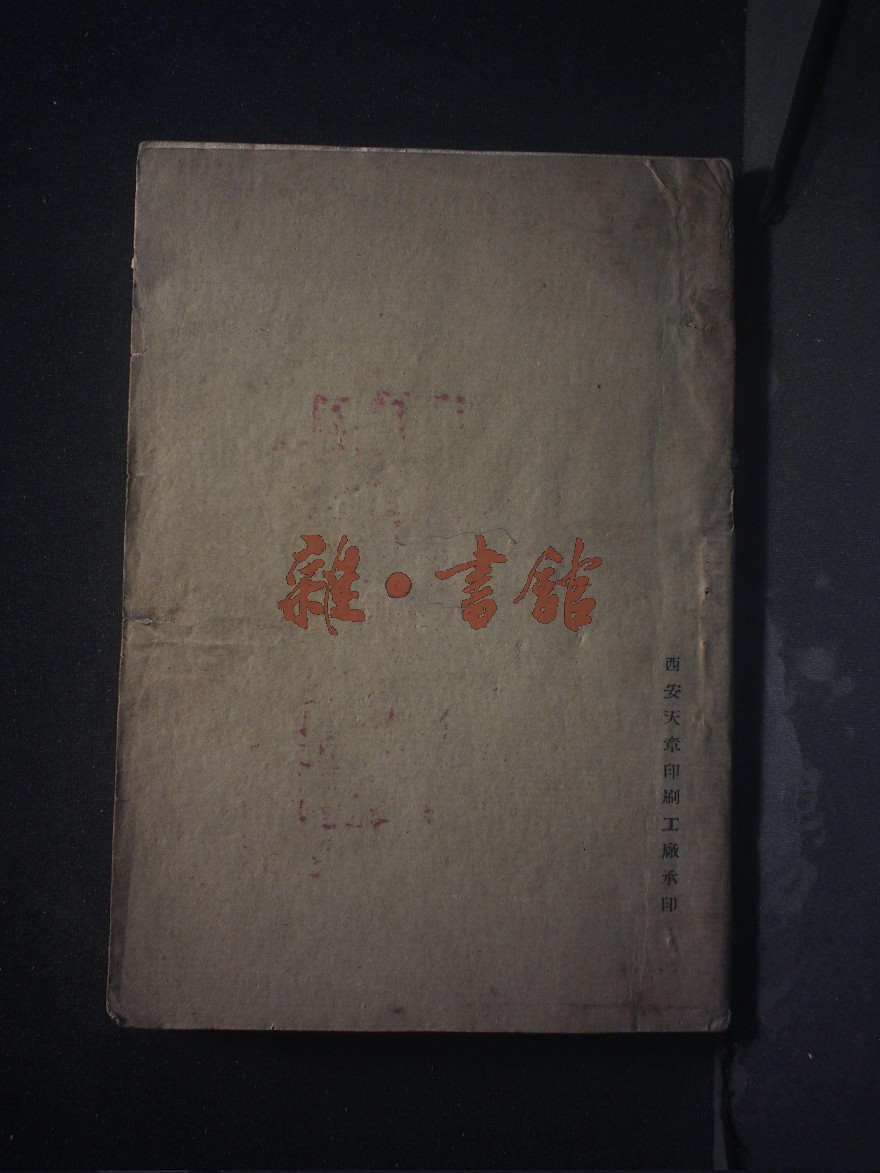 雜·書館
西安天章印刷工廠承印